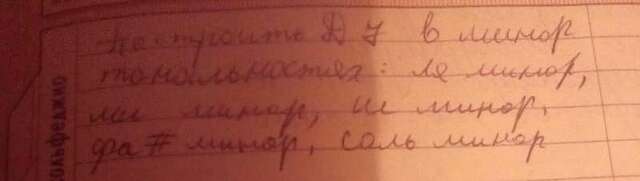 построить D 7 в минор
тональностях: ля минор,
ми минор, си минор,
фа # минор, соль минор
сольфеджио